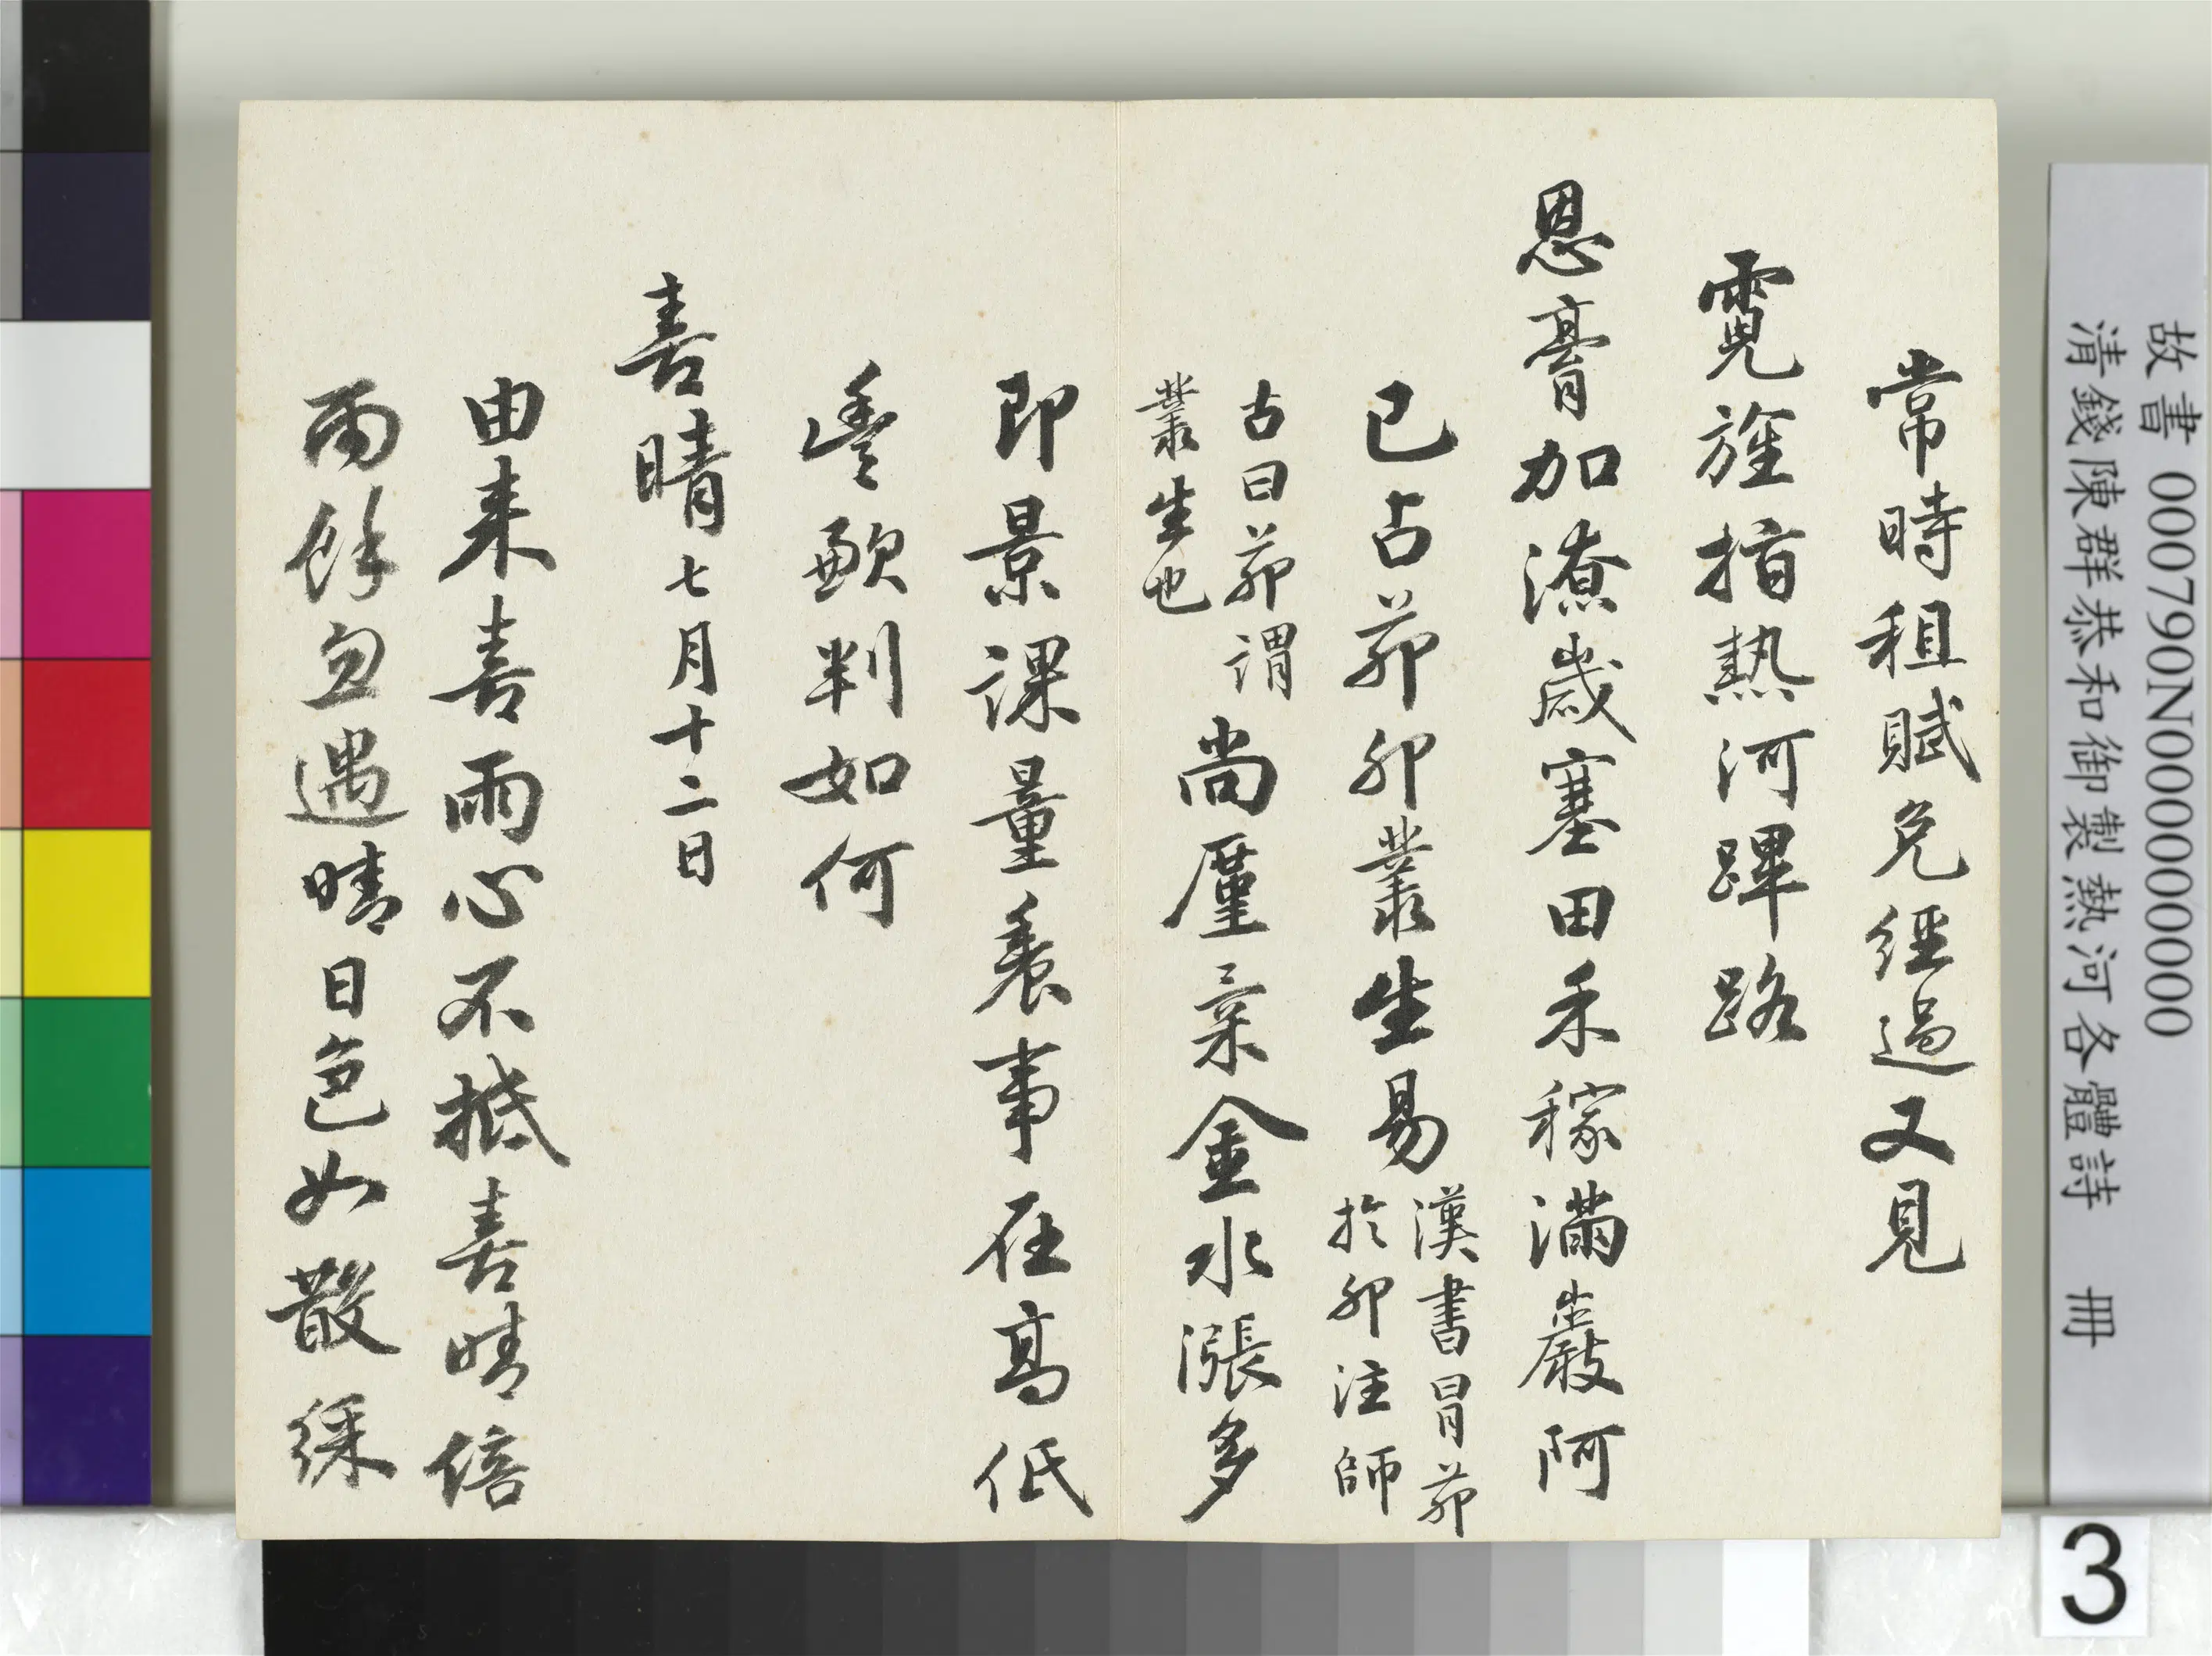 故書000790N000000000
清錢陳群恭和御製熱河各體詩 冊
3
常時租賦免經過又見
霓旌指熱河蹕路
恩膏加潦歲塞田禾稼滿巖阿
已占茆卯叢生易
漢書冒茆
於卯注師
古曰茆謂
叢生也
尚廑桑金水漲多
即景課量農事在高低
豐歉判如何
喜晴七月十二日
由来喜雨心不抵喜晴倍
雨餘忽遇晴日色如散綵